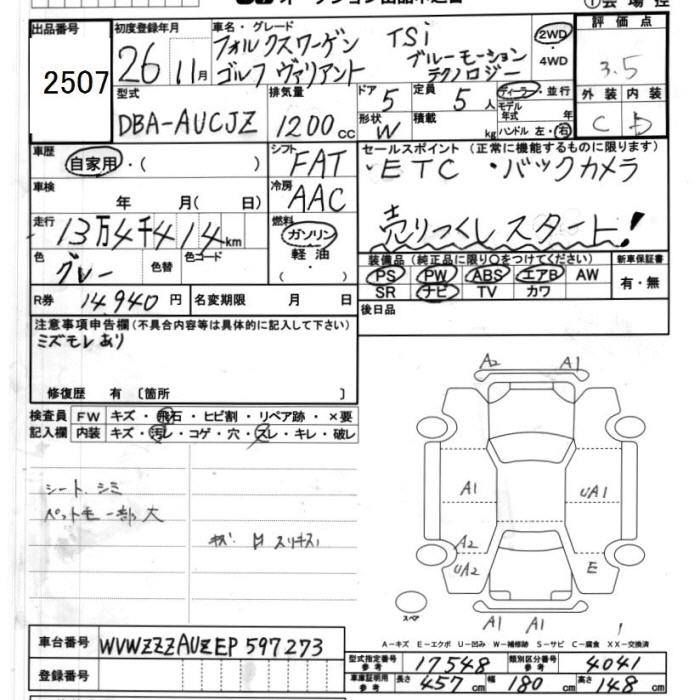 ①会場控
出品番号 2507
初度登録年月 26 11月
車名・グレード フォルクスワーゲン TSi
ゴルフ ヴァリアント ブルーモーション テクノロジー
2WD ・ 4WD
評価点 3.5
外装 内装
C D
型式 DBA-AUCJZ
排気量 1200 cc
ドア 5 定員 5 人
形状 W 積載 kg
ディーラー・並行
モデル年式 年
ハンドル 左・右
車歴 自家用・( )
シフト FAT
車検 年 月( 日)
冷房 AAC
走行 13万4千414km
燃料 ガソリン 軽油 ・( )
色 グレー 色替 色コード
R券 14,940 円 名変期限 月 日
セールスポイント (正常に機能するものに限ります)
・ETC ・バックカメラ
売りつくしスタート!
装備品 (純正品に限り○をつけてください) 新車保証書
PS PW ABS エアB AW 有・無
SR ナビ TV カワ
後日品
注意事項申告欄(不具合内容等は具体的に記入して下さい)
ミズモレあり
修復歴 有 〔箇所 〕
検査員記入欄
FW キズ・飛石・ヒビ割・リペア跡・×要
内装 キズ・汚レ・コゲ・穴・スレ・キレ・破レ
シート、シミ
ペット毛一部大
A2 A1
A1 UA1
A2
UA2 E
A1 A1
スペア
A-キズ E-エクボ U-凹み W-補修跡 S-サビ C-腐食 XX-交換済
車台番号 WVWZZZAUZEP597273
登録番号
型式指定番号参考 17548 類別区分番号参考 4041
車庫証明用参考 長さ 457 cm 幅 180 cm 高さ 148 cm